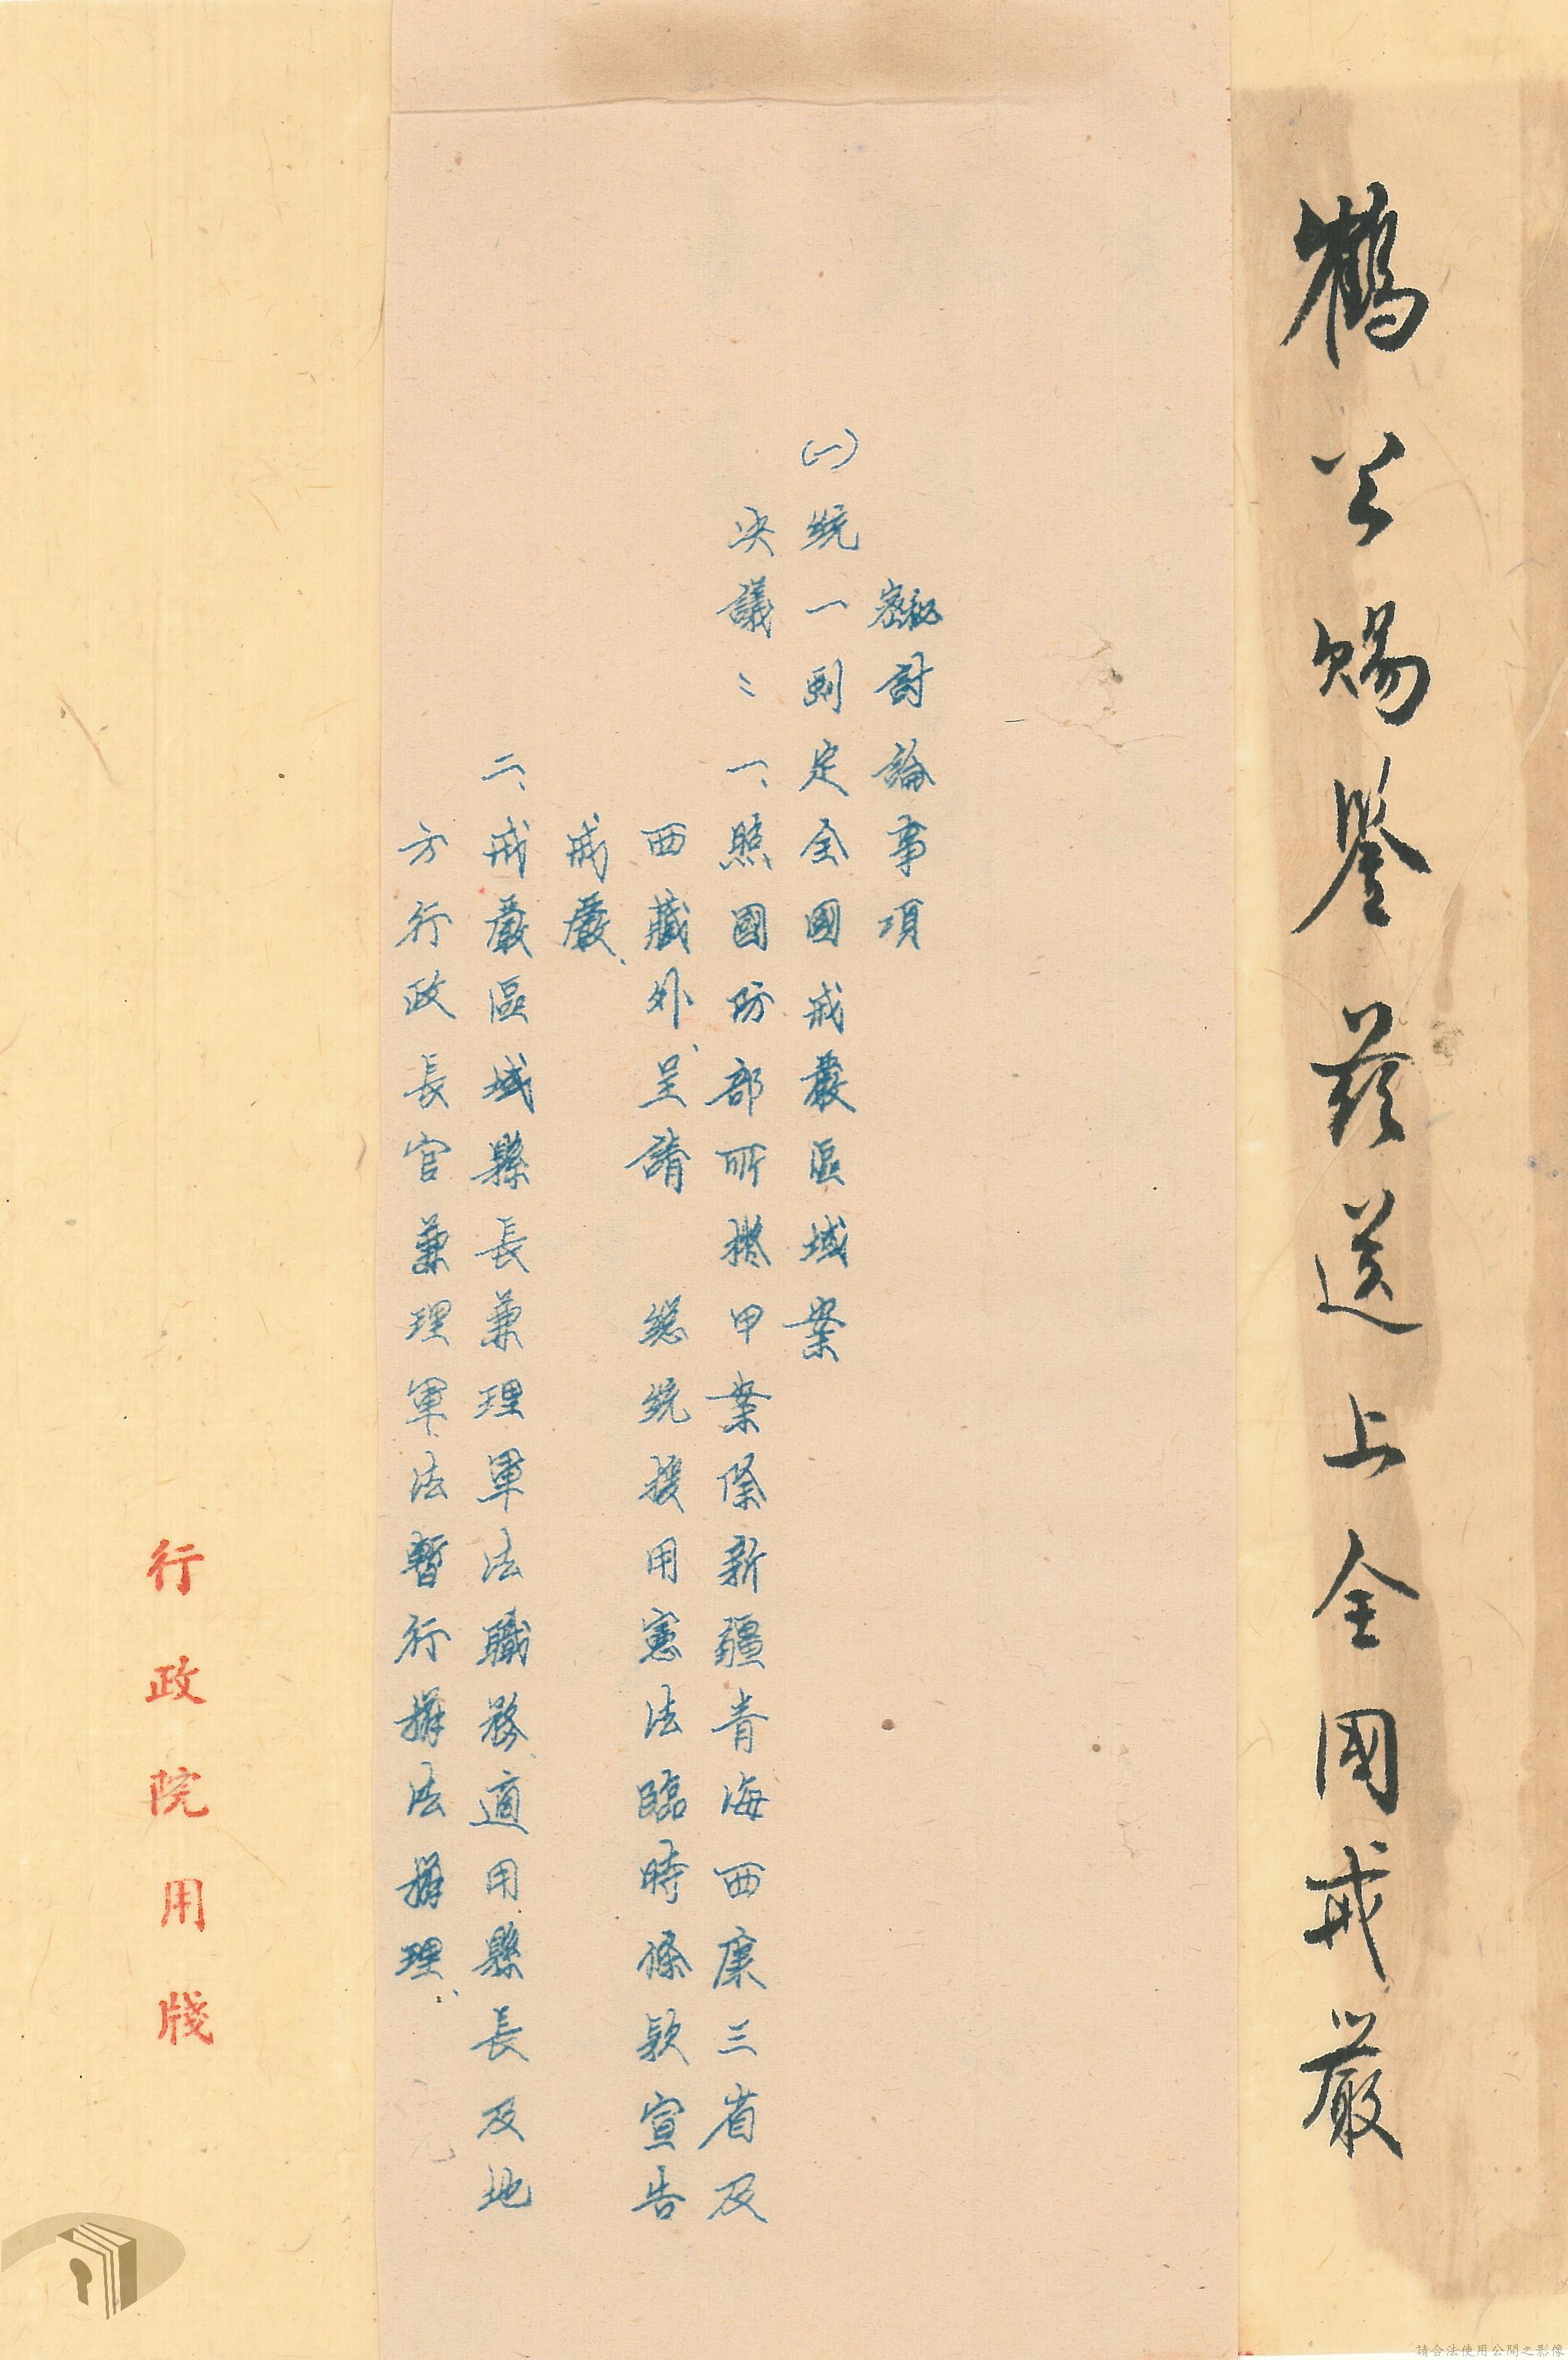 鶴公賜鑒茲送上全國戒嚴
秘密討論事項
(一)統一劃定全國戒嚴區域案
決議：一、照國防部所擬甲案除新疆青海西康三省及
西藏外、呈請　總統援用憲法臨時條款宣告
戒嚴、
二、戒嚴區域縣長兼理軍法職務、適用縣長及地
方行政長官兼理軍法暫行辦法辦理、
行政院用牋
請合法使用公開之影像